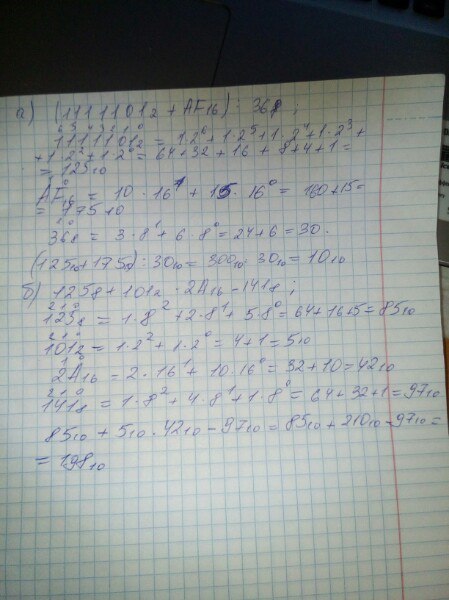 а) (1111101₂ + AF₁₆) : 36₈ ;
6 5 4 3 2 1 0
1111101₂ = 1·2⁶+1·2⁵+1·2⁴+1·2³+
+1·2²+1·2⁰ = 64+32+16+8+4+1=
= 125₁₀
1 0
AF₁₆ = 10·16¹ + 15·16⁰ = 160+15=
= 175₁₀
1 0
36₈ = 3·8¹+6·8⁰=24+6=30.
(125₁₀+175₁₀):30₁₀=300₁₀:30₁₀=10₁₀
б) 125₈+101₂·2A₁₆-141₈;
2 1 0
125₈ = 1·8²+2·8¹+5·8⁰=64+16+5=85₁₀
2 1 0
101₂ = 1·2²+1·2⁰=4+1=5₁₀
1 0
2A₁₆=2·16¹+10·16⁰=32+10=42₁₀
2 1 0
141₈ = 1·8²+4·8¹+1·8⁰=64+32+1=97₁₀
85₁₀+5₁₀·42₁₀-97₁₀=85₁₀+210₁₀-97₁₀=
= 198₁₀